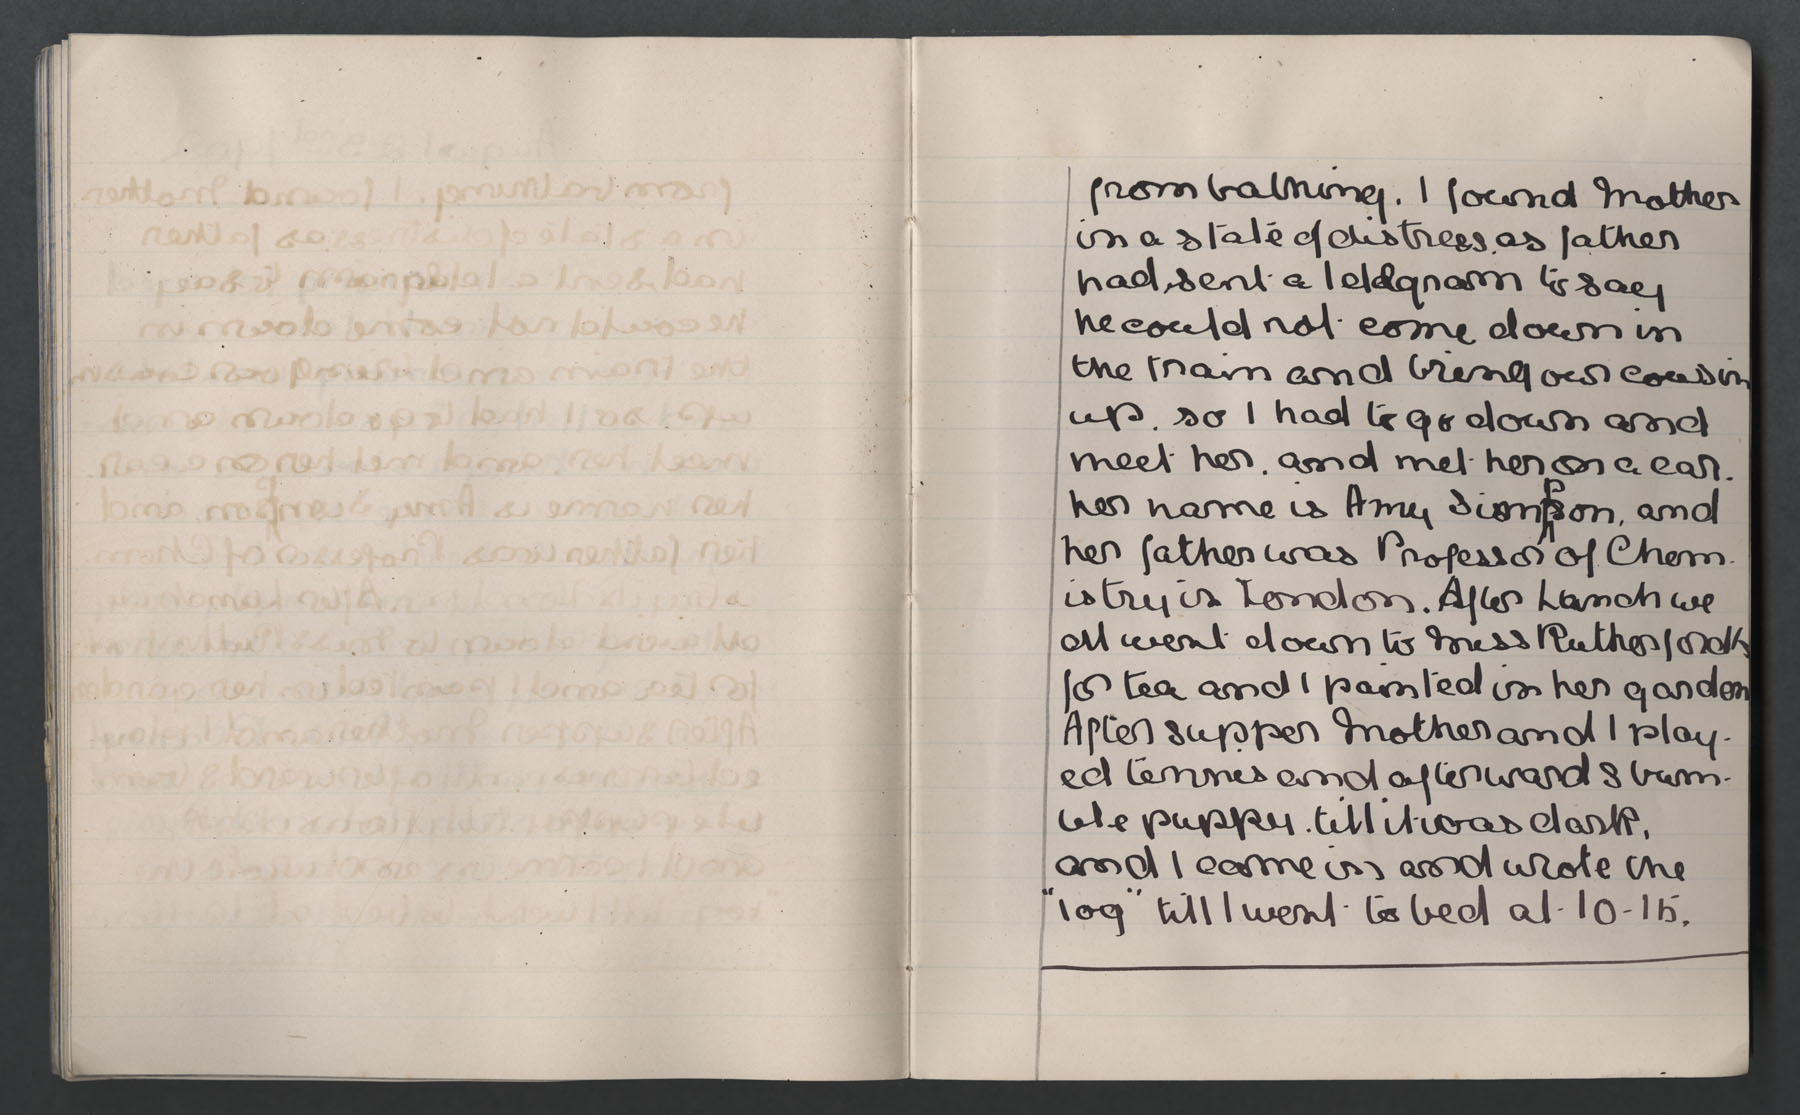 from bathing. I found Mother
in a state of distress as father
had sent a telegram to say
he could not come down in
the train and bring our cousin
up. so I had to go down and
meet her. and met her on a car.
her name is Amy Simpson, and
her father was Professor of Chem-
istry in London. After Lunch we
all went down to Miss Rutherfords
for tea and I painted in her garden
After supper Mother and I play-
ed tennis and afterwards bum-
ble puppy. till it was dark,
and I came in and wrote the
"log" till I went to bed at 10-15.